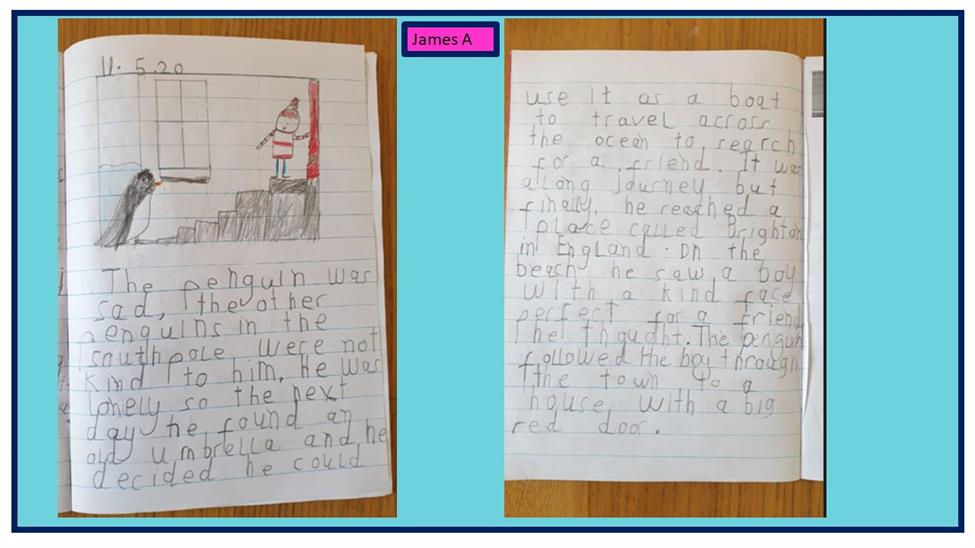 James A
11. 5.20
The penguin was
sad, the other
penguins in the
southpole, were not
kind to him, He was
lonely so the next
day he found an
old umbrella and he
decided he could
use it as a boat
to travel across
the ocean to search
for a friend. It was
a long journey but
finally, he reached a
place called Brighton
in England. On the
beach he saw a boy
with a kind face
perfect for a friend
he thought. The penguin
followed the boy through
the town to a
house with a big
red door.